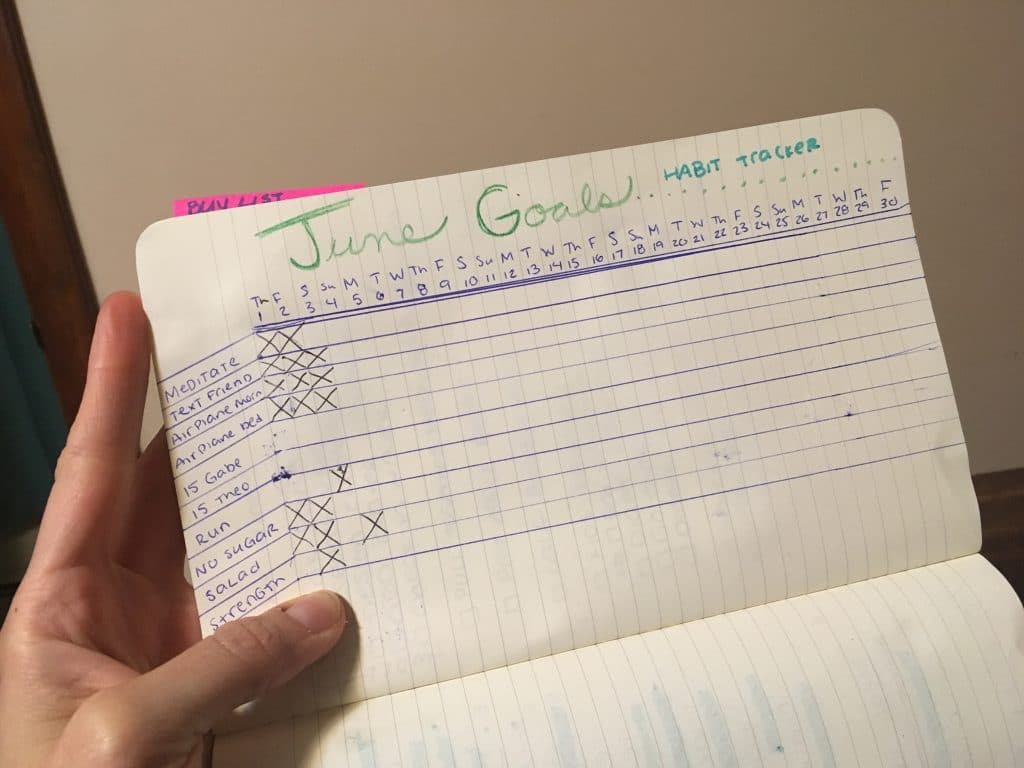 BUY LIST
June Goals...
HABIT Tracker
Th F S Su M T W Th F S Su M T W Th F S Su M T W Th F S Su M T W Th F
1 2 3 4 5 6 7 8 9 10 11 12 13 14 15 16 17 18 19 20 21 22 23 24 25 26 27 28 29 30
Meditate
Text Friend
Airplane Morn
Airplane bed
15 Gabe
15 Theo
Run
No SUGAR
Salad
Strength